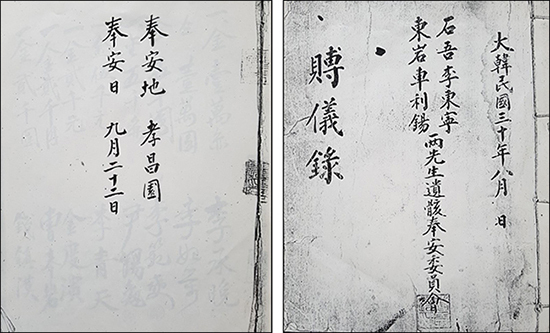 大韓民國三十年八月 日
石吾李東寧
東岩車利錫
兩先生遺骸奉安委員會
賻儀錄
奉安地 孝昌園
奉安日 九月二十二日